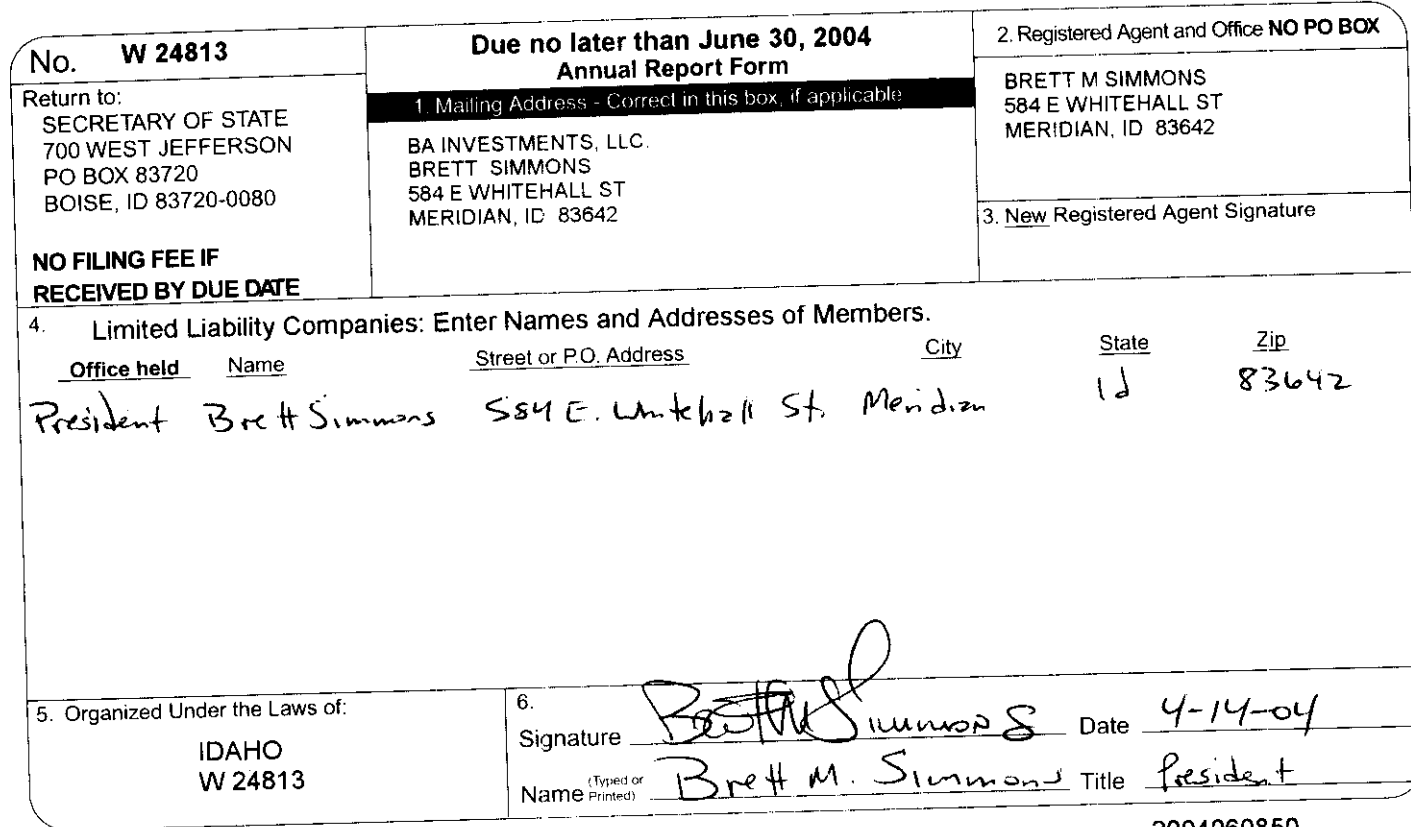 No. W 24813
Return to:
SECRETARY OF STATE
700 WEST JEFFERSON
PO BOX 83720
BOISE, ID 83720-0080
NO FILING FEE IF
RECEIVED BY DUE DATE
Due no later than June 30, 2004
Annual Report Form
1. Mailing Address - Correct in this box, if applicable
BA INVESTMENTS, LLC.
BRETT SIMMONS
584 E WHITEHALL ST
MERIDIAN, ID 83642
2. Registered Agent and Office NO PO BOX
BRETT M SIMMONS
584 E WHITEHALL ST
MERIDIAN, ID 83642
3. New Registered Agent Signature
4. Limited Liability Companies: Enter Names and Addresses of Members.
Office held Name Street or P.O. Address City State Zip
President Brett Simmons 584 E. Whitehall St. Meridian Id 83642
5. Organized Under the Laws of:
IDAHO
W 24813
6.
Signature Brett M Simmons Date 4-14-04
Name (Typed or Printed) Brett M. Simmons Title President